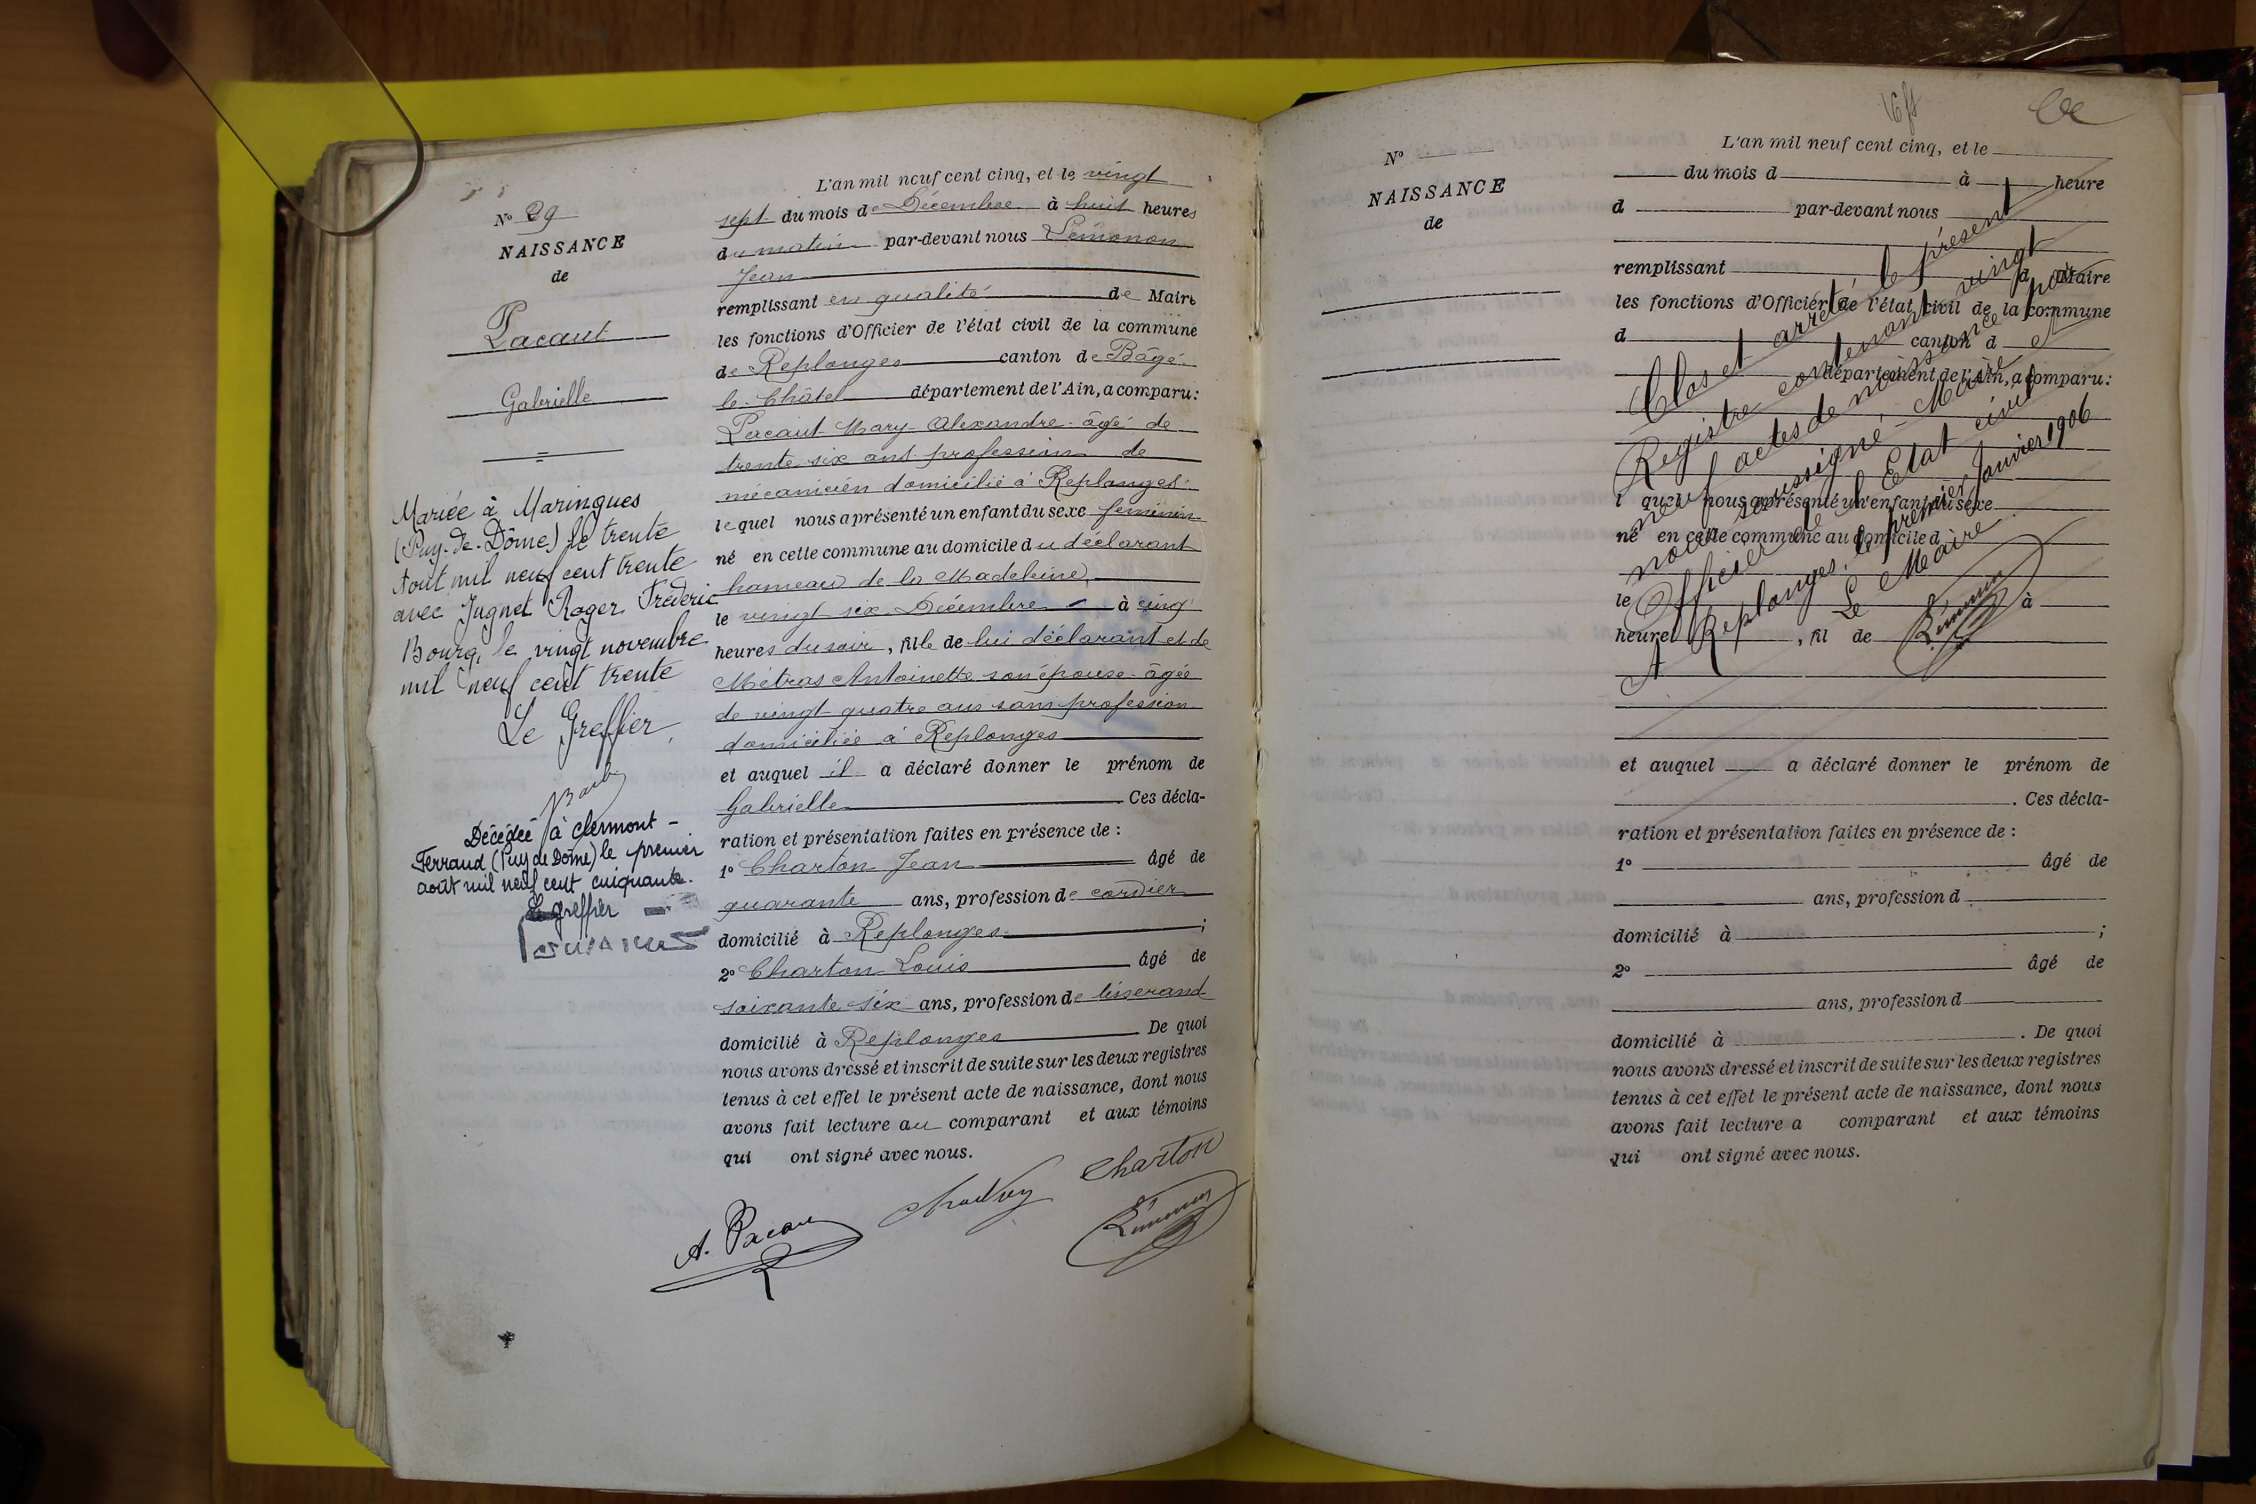 N° 29
NAISSANCE
de
Pacaut
Gabrielle
Mariée à Maringues
(Puy-de-Dôme) le trente
Aout mil neuf cent trente
avec Jugnet Roger Frédéric
Bourg, le vingt novembre
mil neuf cent trente
Le Greffier
Décédée à Clermont-
Ferrand (Puy de Dôme) le premier
août mil neuf cent cinquante.
Le greffier
L'an mil neuf cent cinq, et le vingt
sept du mois de Décembre à huit heures
du matin par-devant nous Lémonon
Jean
remplissant en qualité de Maire
les fonctions d'Officier de l'état civil de la commune
de Replonges canton de Bâgé
le Châtel département de l'Ain, a comparu:
Pacaut Mary Alexandre âgé de
trente six ans profession de
mécanicien domicilié à Replonges
lequel nous a présenté un enfant du sexe feminin
né en cette commune au domicile du déclarant
hameau de la Madeleine
le vingt six Décembre à cinq
heures du soir, fille de lui déclarant et de
Métras Antoinette son épouse âgée
de vingt quatre ans sans profession
domiciliée à Replonges
et auquel il a déclaré donner le prénom de
Gabrielle Ces décla-
ration et présentation faites en présence de :
1° Charton Jean âgé de
quarante ans, profession de cordier
domicilié à Replonges ;
2° Charton Louis âgé de
soixante six ans, profession de tisserand
domicilié à Replonges De quoi
nous avons dressé et inscrit de suite sur les deux registres
tenus à cet effet le présent acte de naissance, dont nous
avons fait lecture au comparant et aux témoins
qui ont signé avec nous.
A. Pacau
Charton
Lémonon
N°
NAISSANCE
de
L'an mil neuf cent cinq, et le
du mois d à heure
d par-devant nous
remplissant d Maire
les fonctions d'Officier de l'état civil de la commune
d canton d
département de l'Ain, a comparu:
l quel nous a présenté un enfant du sexe
né en cette commune au domicile d
le à
heure , fil de
Clos et arrêté le présent
Registre contenant vingt
neuf actes de naissance par
nous soussigné, Maire et
Officier de l'Etat civil
A Replonges, le premier Janvier 1906
Le Maire
Lémonon
et auquel a déclaré donner le prénom de
. Ces décla-
ration et présentation faites en présence de :
1° âgé de
ans, profession d
domicilié à ;
2° âgé de
ans, profession d
domicilié à . De quoi
nous avons dressé et inscrit de suite sur les deux registres
tenus à cet effet le présent acte de naissance, dont nous
avons fait lecture a comparant et aux témoins
qui ont signé avec nous.